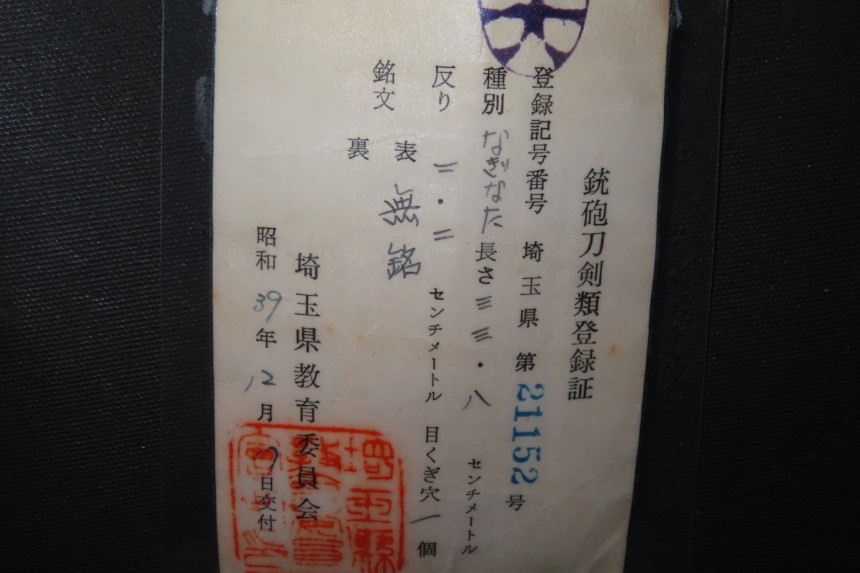 銃砲刀剣類登録証
登録記号番号 埼玉県 第21152号
種別 なぎなた 長さ 三三・八 センチメートル
反り 二・二 センチメートル 目くぎ穴 一 個
銘文 表 無銘
裏
埼玉県教育委員会
昭和39年12月17日交付